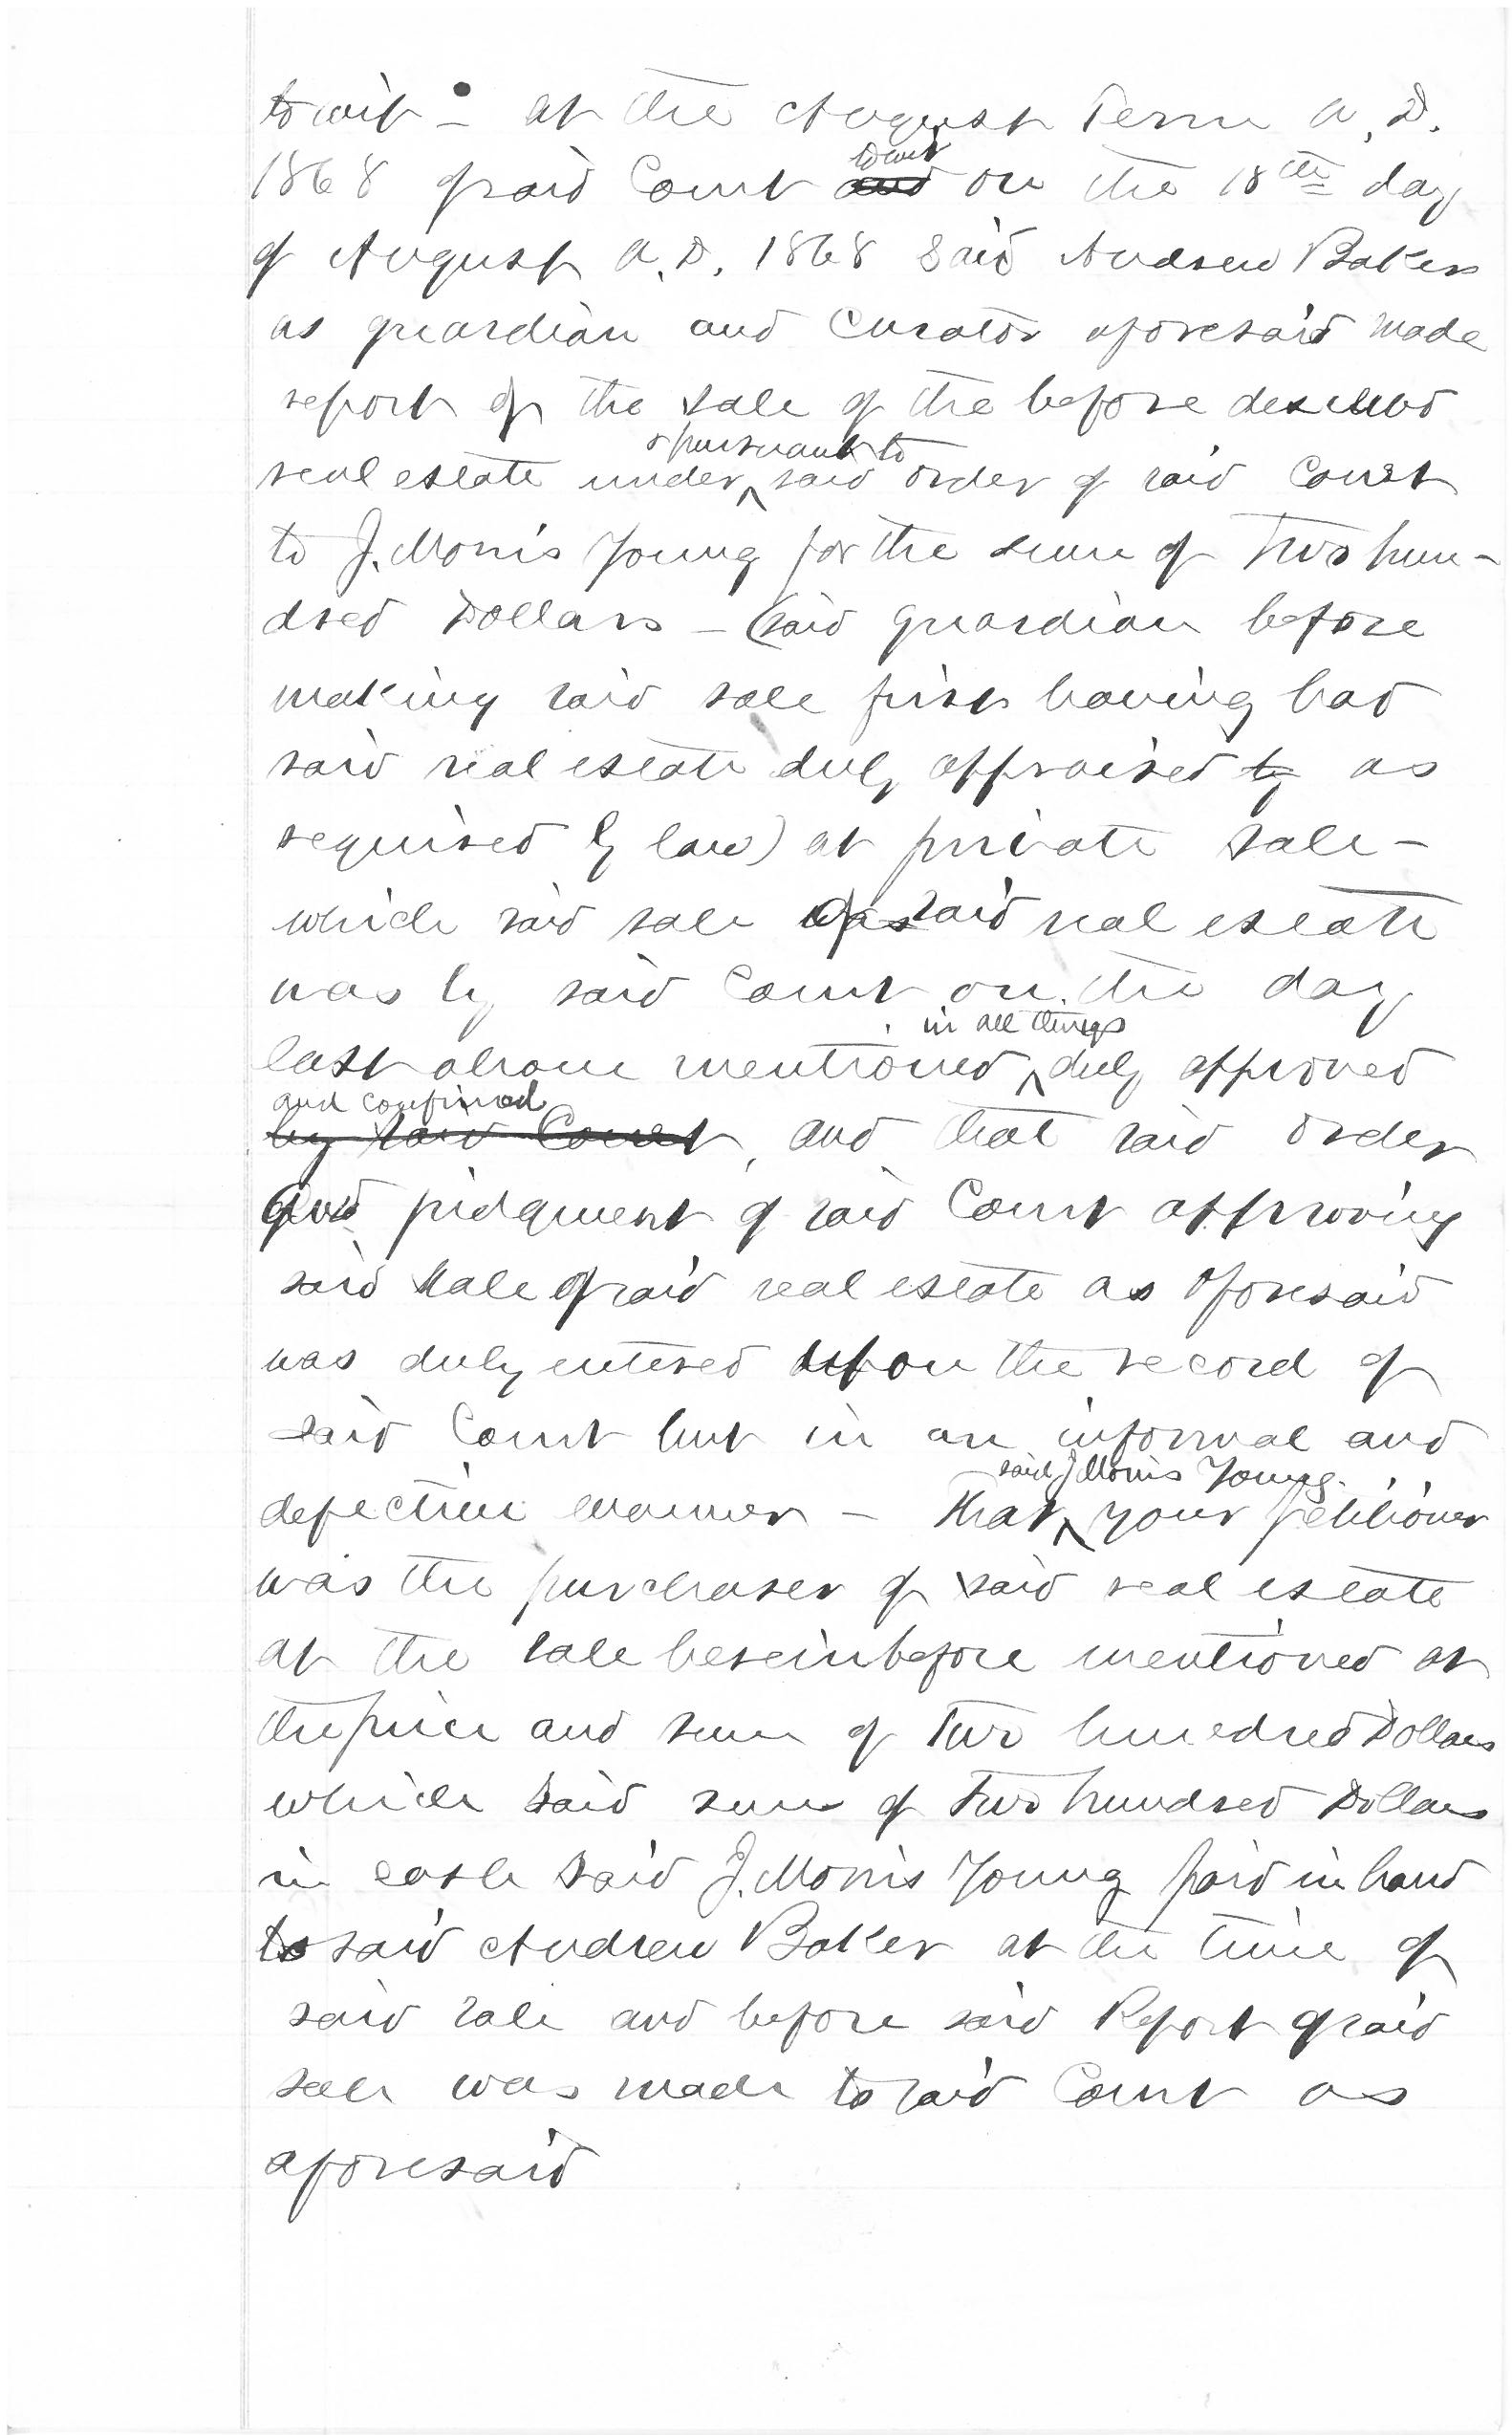 to wit - at the August Term A.D.
to wit
1868 of said Court and on the 18th day
of August A.D. 1868 said Andrew Baker
as guardian and Curator aforesaid made
report of the sale of the before described
& pursuant to
real estate under ^ said order of said Court
to J. Morris Young for the sum of Two hun-
dred Dollars - (said guardian before
making said sale first having had
said real estate duly appraised by as
required by law) at private sale -
which said sale of said real estate
was by said Court on the day
in all things
last above mentioned ^ duly approved
and confirmed
by said Court, and that said order
and judgment of said Court approving
said sale of said real estate as aforesaid
was duly entered upon the record of
said Court but in an informal and
said J Morris Young
defective manner - That ^ your petitioner
was the purchaser of said real estate
at the sale hereinbefore mentioned at
the price and sum of Two hundred Dollars
which said sum of Two hundred Dollars
in cash said J. Morris Young paid in hand
to said Andrew Baker at the time of
said sale and before said Report of said
sale was made to said Court as
aforesaid